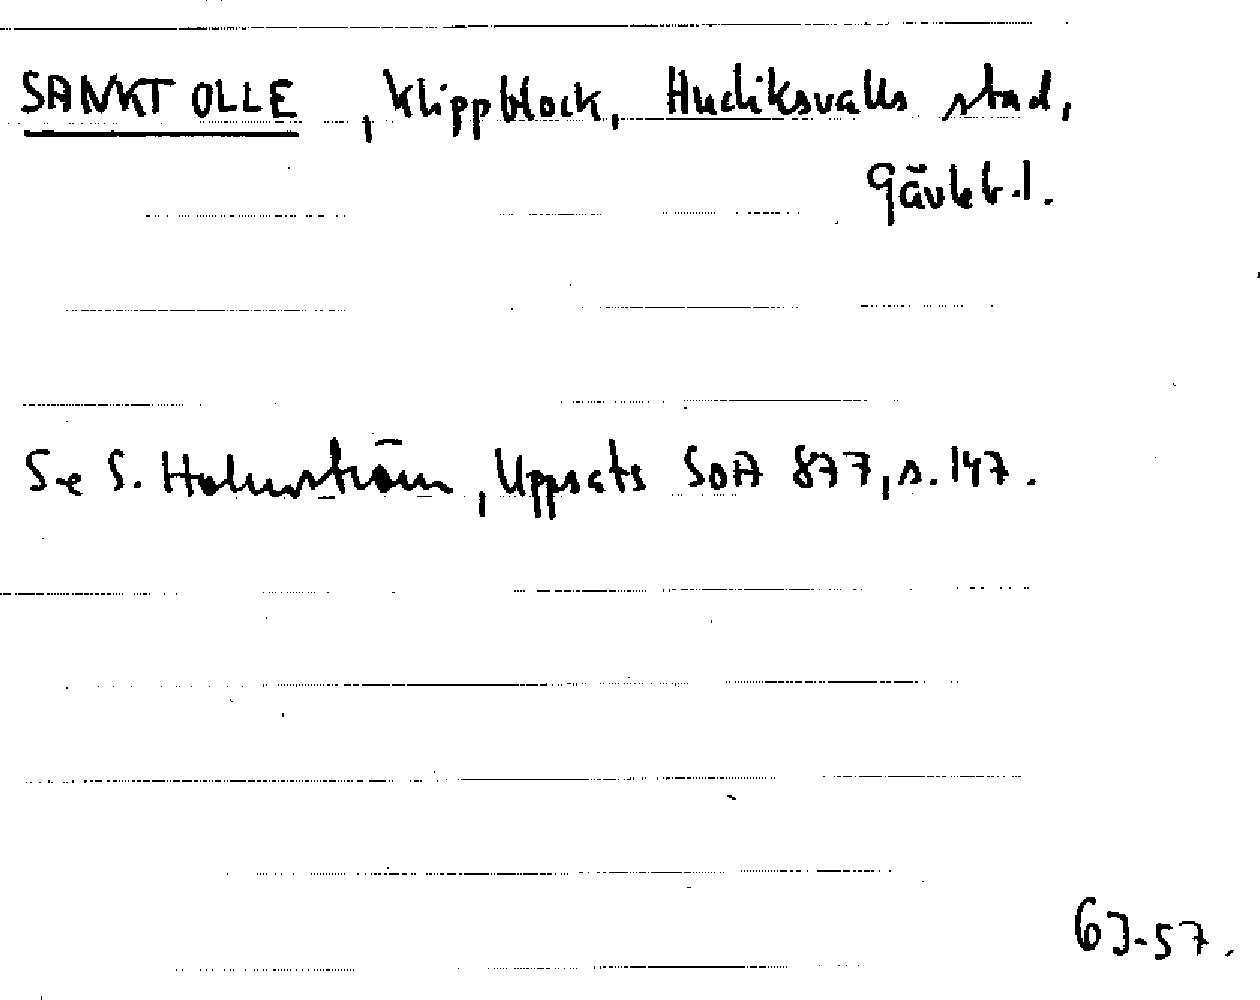 SANKT OLLE, klippblock, Hudiksvalls stad,
Gävleb.l.
Se S. Holmström, Uppsats SOA 877, s. 147.
GJ-57.